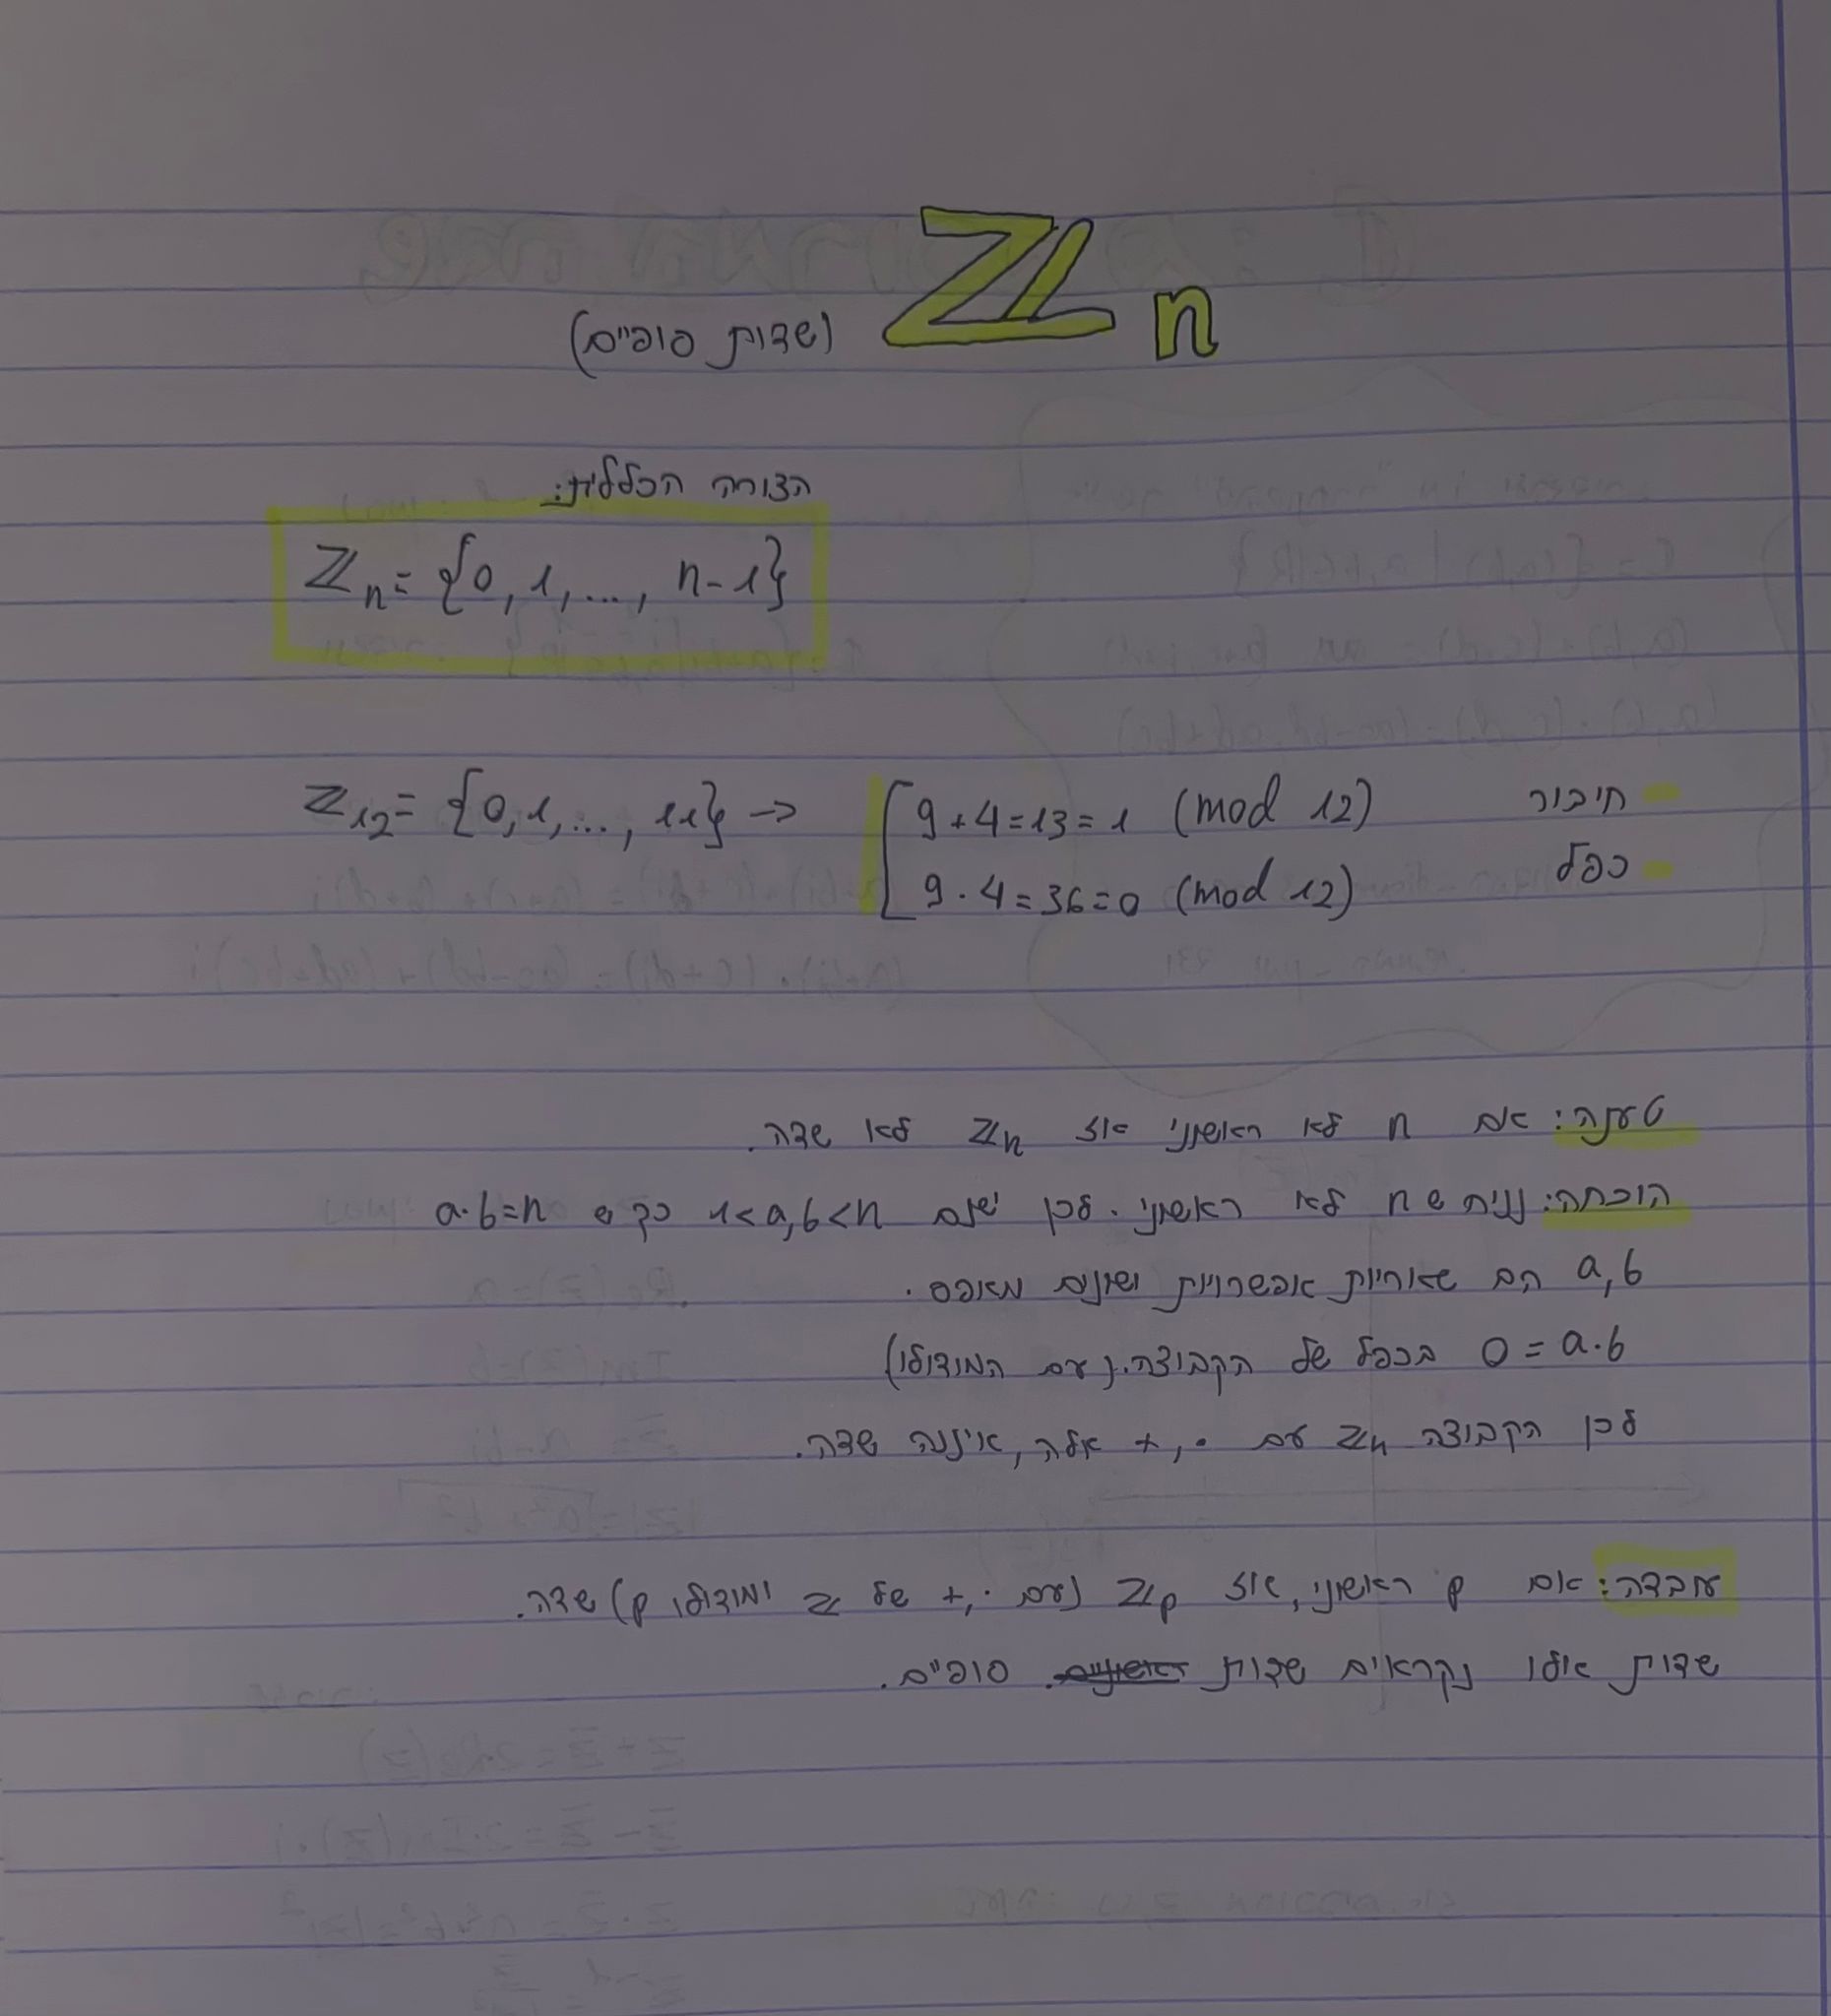 ℤn (שדות סופיים)
הצורה הכללית:
ℤn = {0, 1, ..., n-1}
ℤ12 = {0, 1, ..., 11} → [ 9 + 4 = 13 = 1 (mod 12) חיבור
9 · 4 = 36 = 0 (mod 12) כפל
טענה: אם n לא ראשוני אז ℤn לא שדה.
הוכחה: נניח ש n לא ראשוני. לכן ישנם 1<a,b<n כך ש a·b=n
a,b הם שאריות אפשריות ושונים מאפס.
a·b = 0 בכפל של הקבוצה. (עם המודולו)
לכן הקבוצה ℤn עם ·,+ אלה, איננה שדה.
עובדה: אם p ראשוני, אז ℤp (עם ·,+ של ℤ ומודולו p) שדה.
שדות אלו נקראים שדות ראשוניים. סופיים.